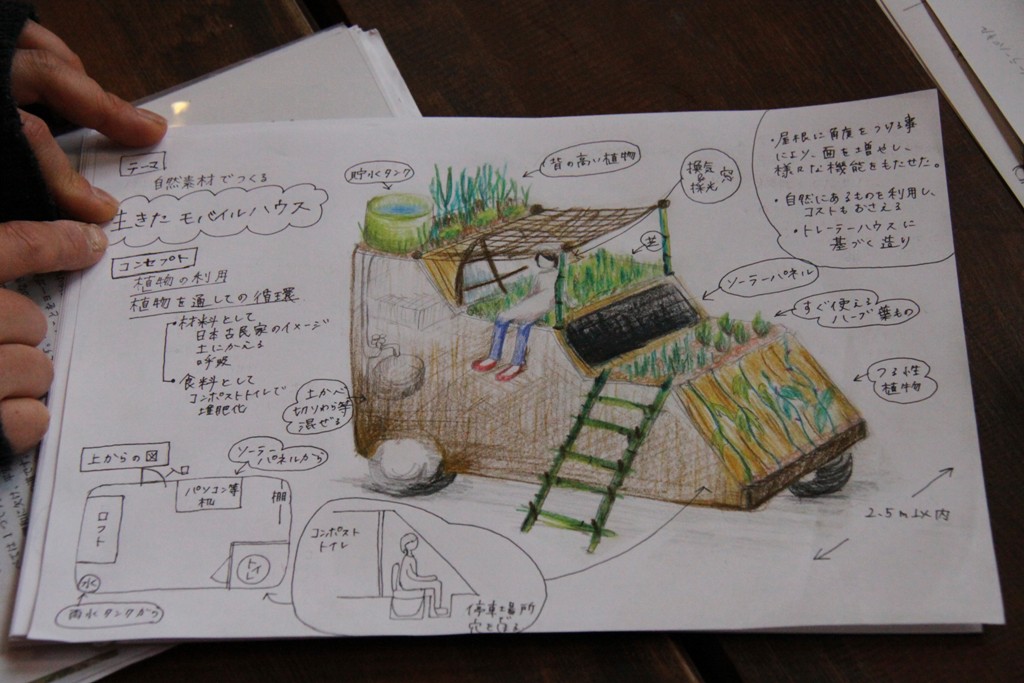 テーマ
自然素材でつくる
生きた モバイルハウス
コンセプト
植物の利用
植物を通しての循環
・材料として
日本古民家のイメージ
土にかえる
呼吸
・食料として
コンポストトイレで
堆肥化
貯水タンク
背の高い植物
換気
&
採光
穴
芝
ソーラーパネル
すぐ使える
ハーブ 葉もの
つる性
植物
・屋根に角度をつける事
により、面を増やし、
様々な機能をもたせた。
・自然にあるものを利用し、
コストもおさえる
・トレーラーハウスに
基づく造り
土かべ
切りわら等
混ぜる
2.5m以内
上からの図
ソーラー
パネルから
パソコン等
机
棚
ロフト
水
トイレ
雨水タンクから
コンポスト
トイレ
停車場所
穴をほる